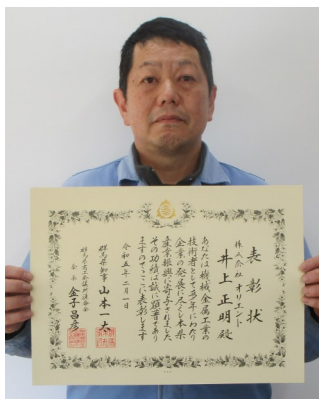 表彰状
株式会社 オリエント
井上正明 殿
あなたは機械金属工業の
技術者として多年にわたり
企業の発展に尽くし本県
産業振興に寄与されました
その功績は誠に顕著であり
ますのでここに表彰します
令和五年二月一日
群馬県知事 山本一太
会長 金子昌彦